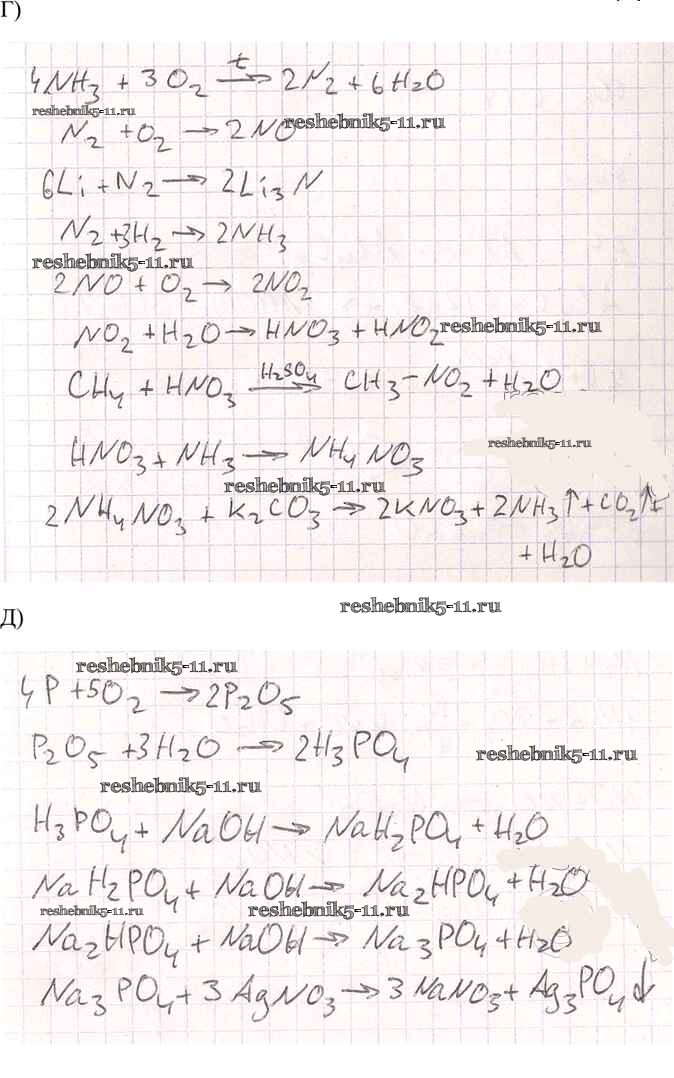 Г)
4NH₃ + 3O₂ —t→ 2N₂ + 6H₂O
reshebnik5-11.ru
N₂ + O₂ → 2NO
reshebnik5-11.ru
6Li + N₂ → 2Li₃N
N₂ + 3H₂ → 2NH₃
reshebnik5-11.ru
2NO + O₂ → 2NO₂
NO₂ + H₂O → HNO₃ + HNO₂
reshebnik5-11.ru
CH₄ + HNO₃ —H₂SO₄→ CH₃-NO₂ + H₂O
reshebnik5-11.ru
HNO₃ + NH₃ → NH₄NO₃
reshebnik5-11.ru
2NH₄NO₃ + K₂CO₃ → 2KNO₃ + 2NH₃↑ + CO₂↑ +
+ H₂O
reshebnik5-11.ru
Д)
reshebnik5-11.ru
4P + 5O₂ → 2P₂O₅
P₂O₅ + 3H₂O → 2H₃PO₄
reshebnik5-11.ru
reshebnik5-11.ru
H₃PO₄ + NaOH → NaH₂PO₄ + H₂O
NaH₂PO₄ + NaOH → Na₂HPO₄ + H₂O
reshebnik5-11.ru
reshebnik5-11.ru
Na₂HPO₄ + NaOH → Na₃PO₄ + H₂O
Na₃PO₄ + 3AgNO₃ → 3NaNO₃ + Ag₃PO₄↓